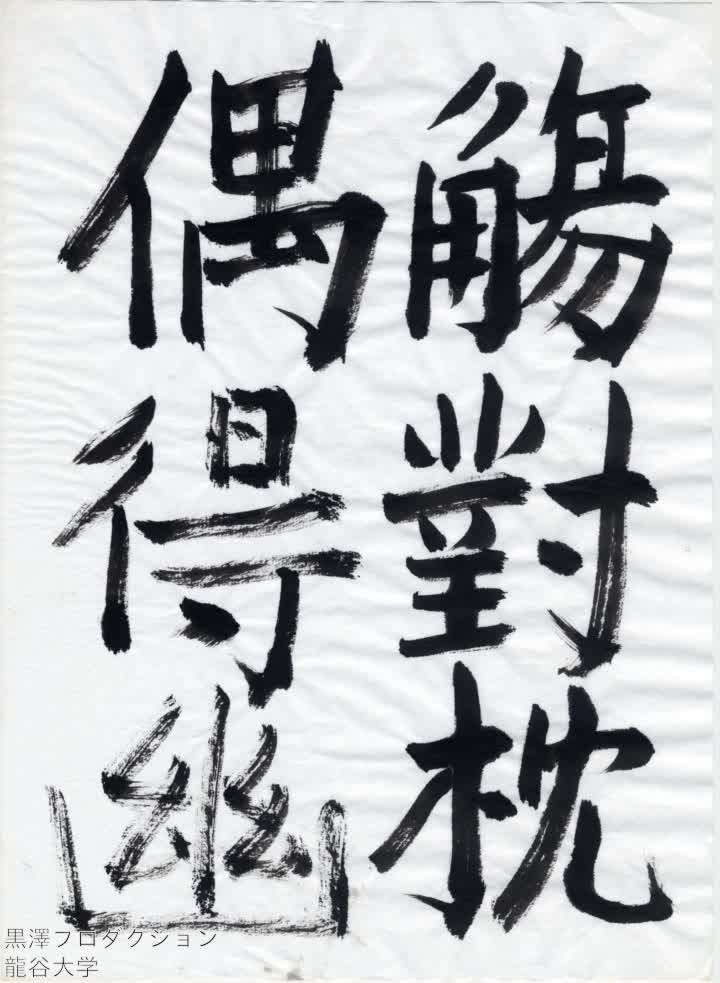 觴對枕
偶得幽
黒澤プロダクション
龍谷大学